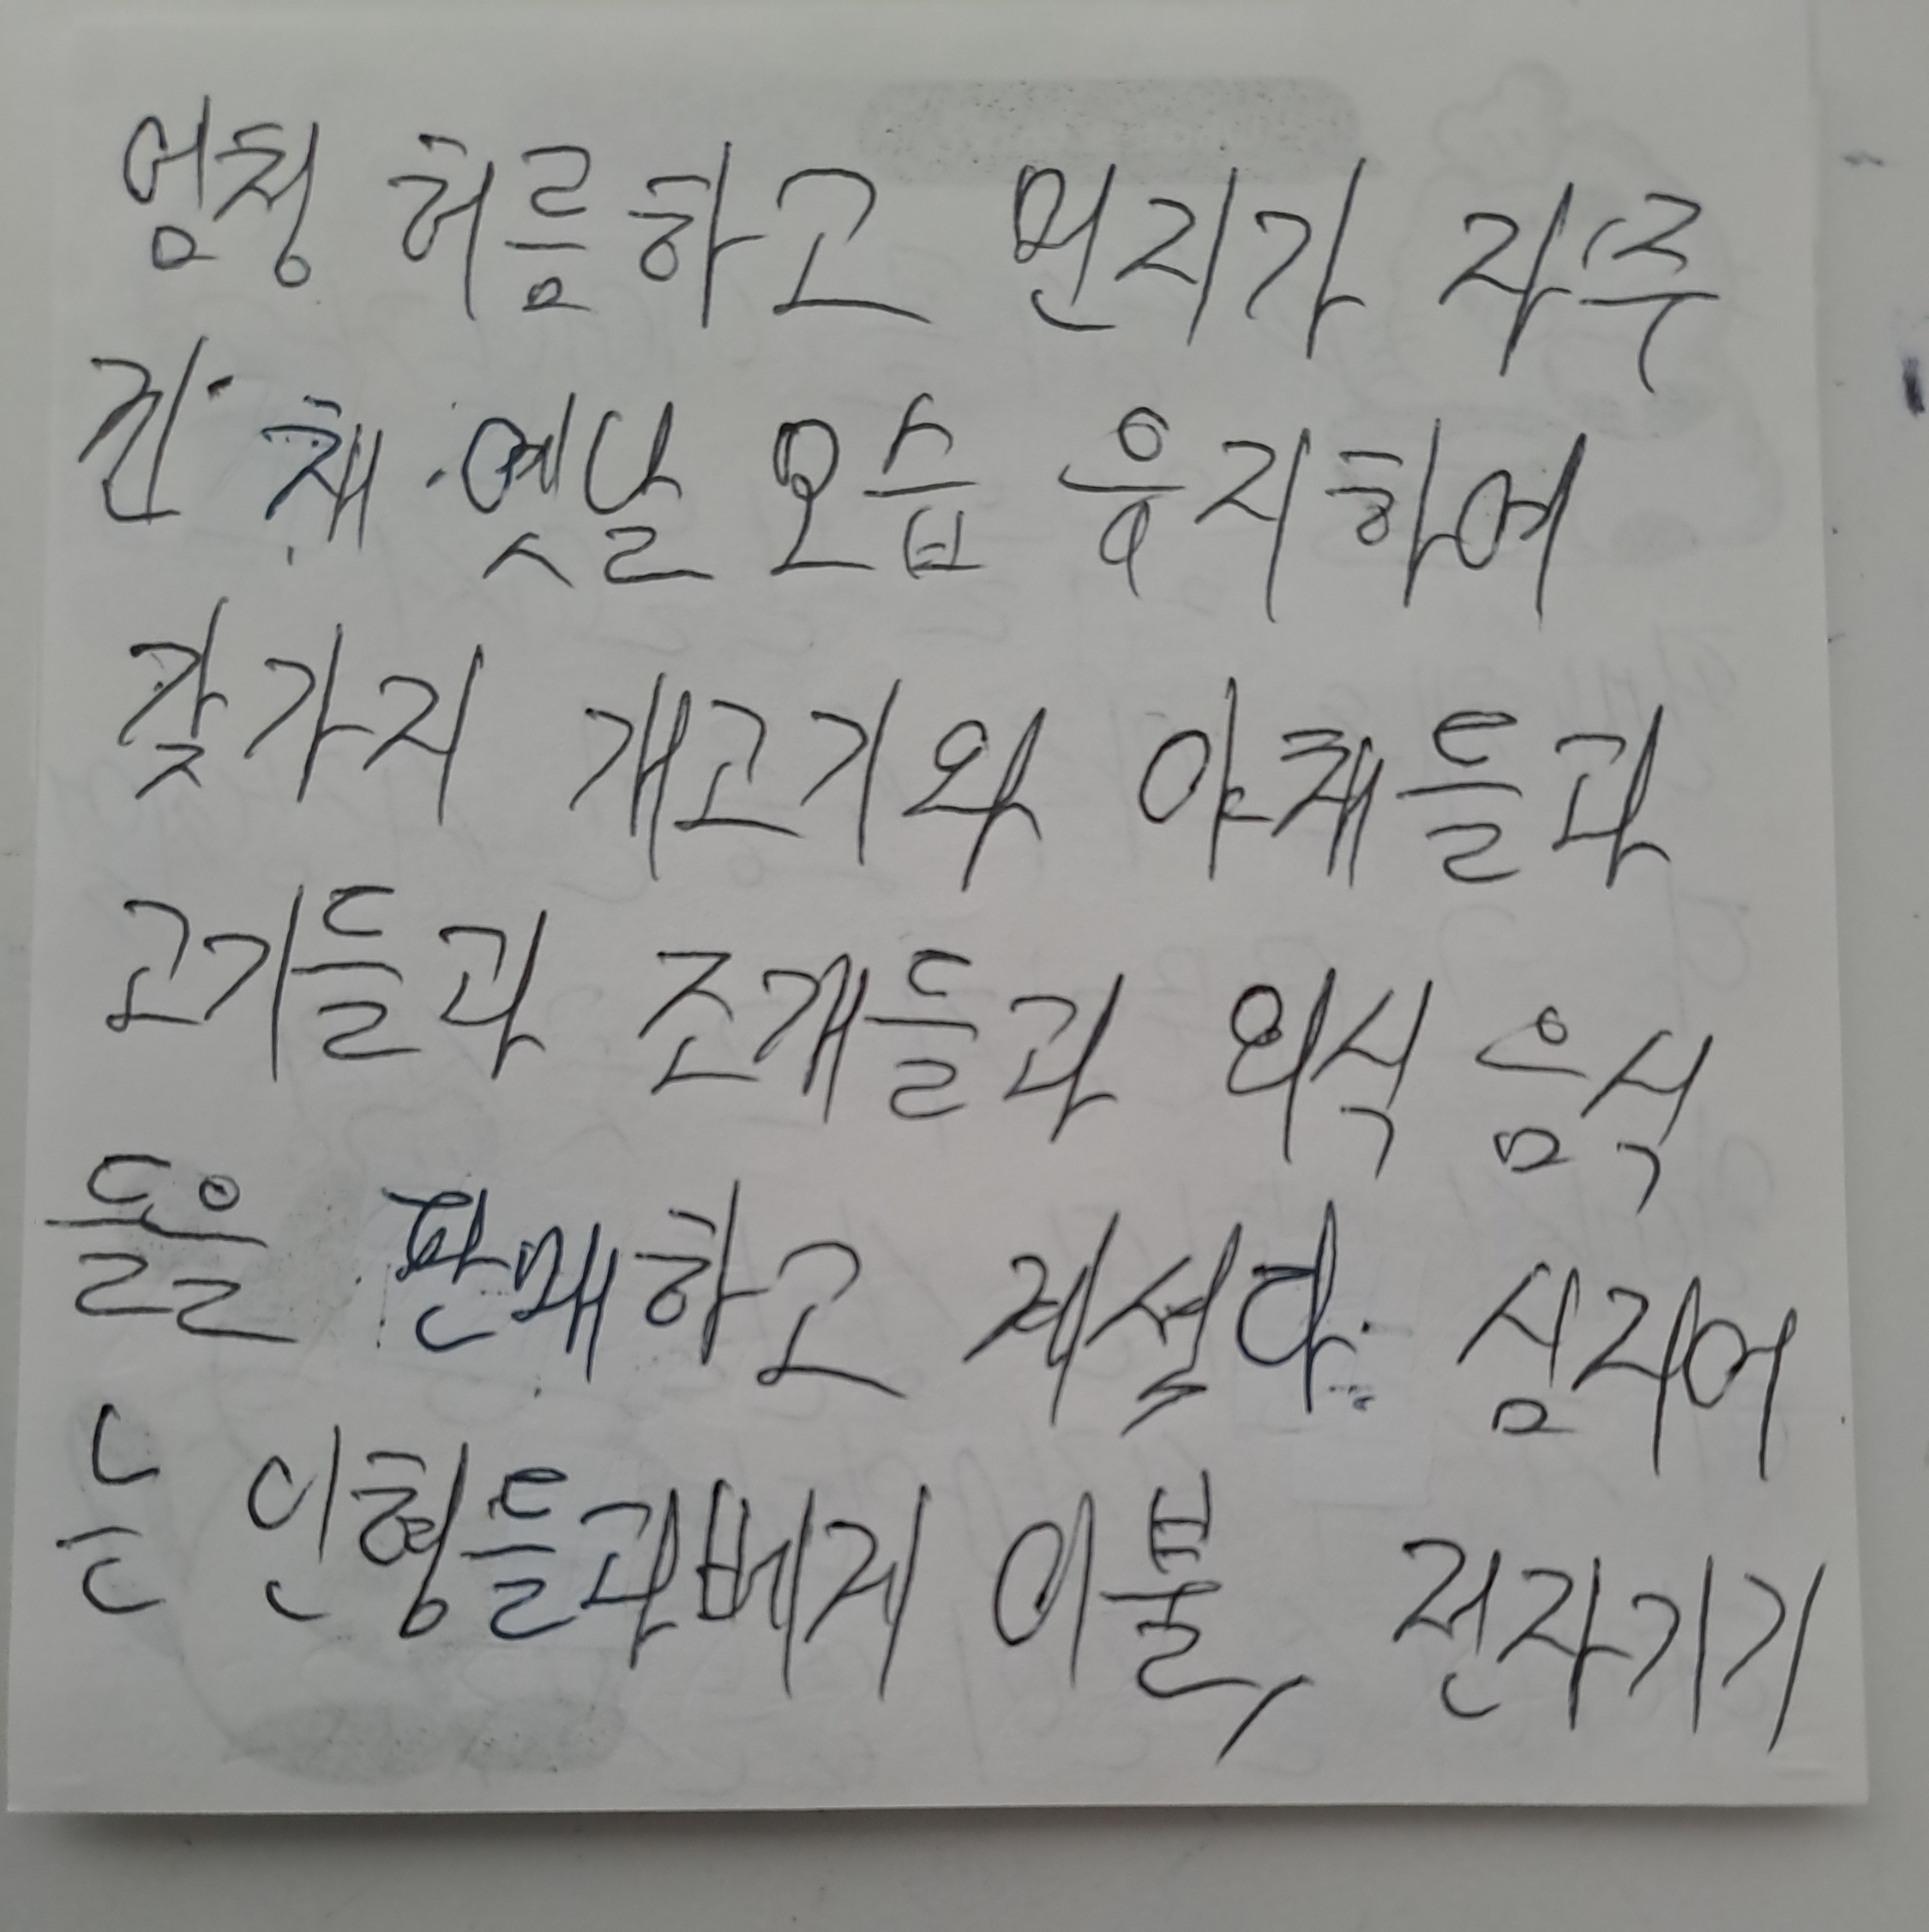 엄청 허름하고 먼지가 자주
낀 채 옛날 모습 유지하여
갖가지 개고기와 야채들과
고기들과 조개들과 외식 음식
들을 판매하고 계셨다. 심지어
는 인형들과 베게 이불, 전자기기